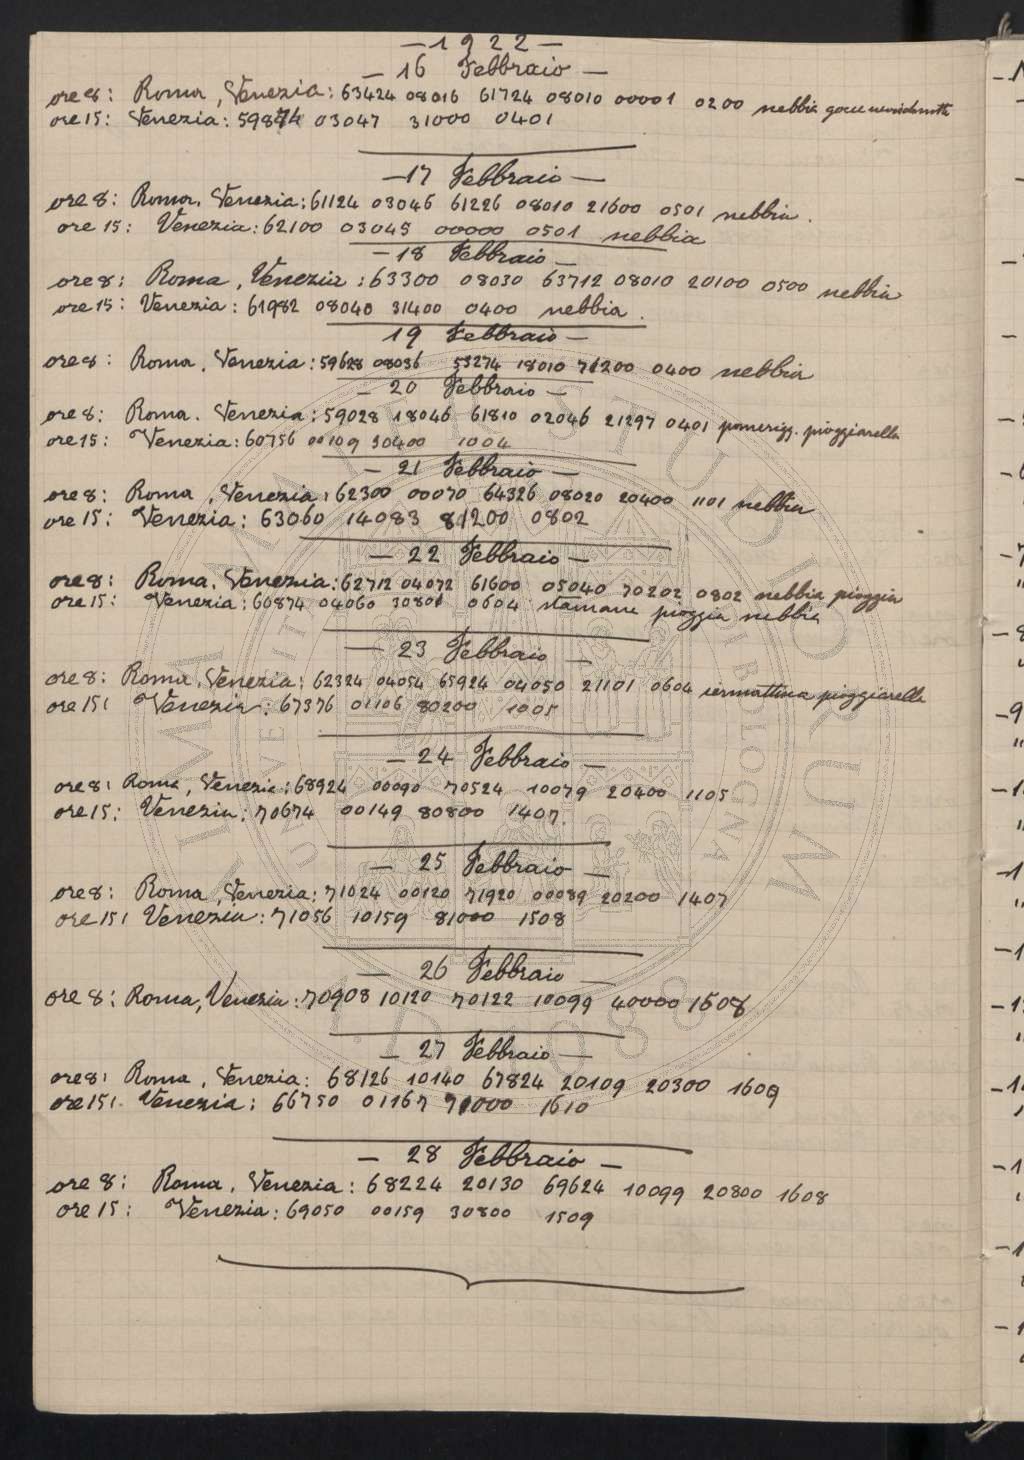 — 1922 —
— 16 Febbraio —
ore 8: Roma, Venezia: 63424 08016 61724 08010 00001 0200 nebbia gocce
ore 15: Venezia: 59874 03047 31000 0401
— 17 Febbraio —
ore 8: Roma. Venezia: 61124 03046 61226 08010 21600 0501 nebbia.
ore 15: Venezia: 62100 03045 00000 0501 nebbia
— 18 Febbraio —
ore 8: Roma, Venezia: 63300 08030 63712 08010 20100 0500 nebbia
ore 15: Venezia: 61982 08040 31400 0400 nebbia.
19 Febbraio —
ore 8: Roma, Venezia: 59628 08036 53274 18010 71200 0400 nebbia
— 20 Febbraio —
ore 8: Roma. Venezia: 59028 18046 61810 02046 21297 0401 pomerigg. pioggiarella
ore 15: Venezia: 60756 00109 30400 1004
— 21 Febbraio —
ore 8: Roma, Venezia: 62300 00070 64326 08020 20400 1101 nebbia
ore 15: Venezia: 63060 14083 81200 0802
— 22 Febbraio —
ore 8: Roma. Venezia: 62712 04072 61600 05040 70202 0802 nebbia pioggia
ore 15: Venezia: 60874 04060 30801 0604 stamane pioggia nebbia
— 23 Febbraio —
ore 8: Roma, Venezia: 62324 04054 65924 04050 21101 0604 iermattina pioggiarella
ore 15: Venezia: 67376 01106 80200 1005
— 24 Febbraio —
ore 8: Roma, Venezia: 68924 00090 70524 10079 20400 1105
ore 15: Venezia: 70674 00149 80800 1407.
— 25 Febbraio —
ore 8: Roma, Venezia: 71024 00120 71920 00089 20200 1407
ore 15: Venezia: 71056 10159 81000 1508
— 26 Febbraio —
ore 8: Roma, Venezia: 70908 10120 70122 10099 40000 1508
— 27 Febbraio —
ore 8: Roma, Venezia: 68126 10140 67824 20109 20300 1609
ore 15: Venezia: 66750 01167 71000 1610
— 28 Febbraio —
ore 8: Roma. Venezia: 68224 20130 69624 10099 20800 1608
ore 15: Venezia: 69050 00159 30800 1509
ALMA MATER STUDIORUM
A.D. 1088
UNIVERSITÀ DI BOLOGNA